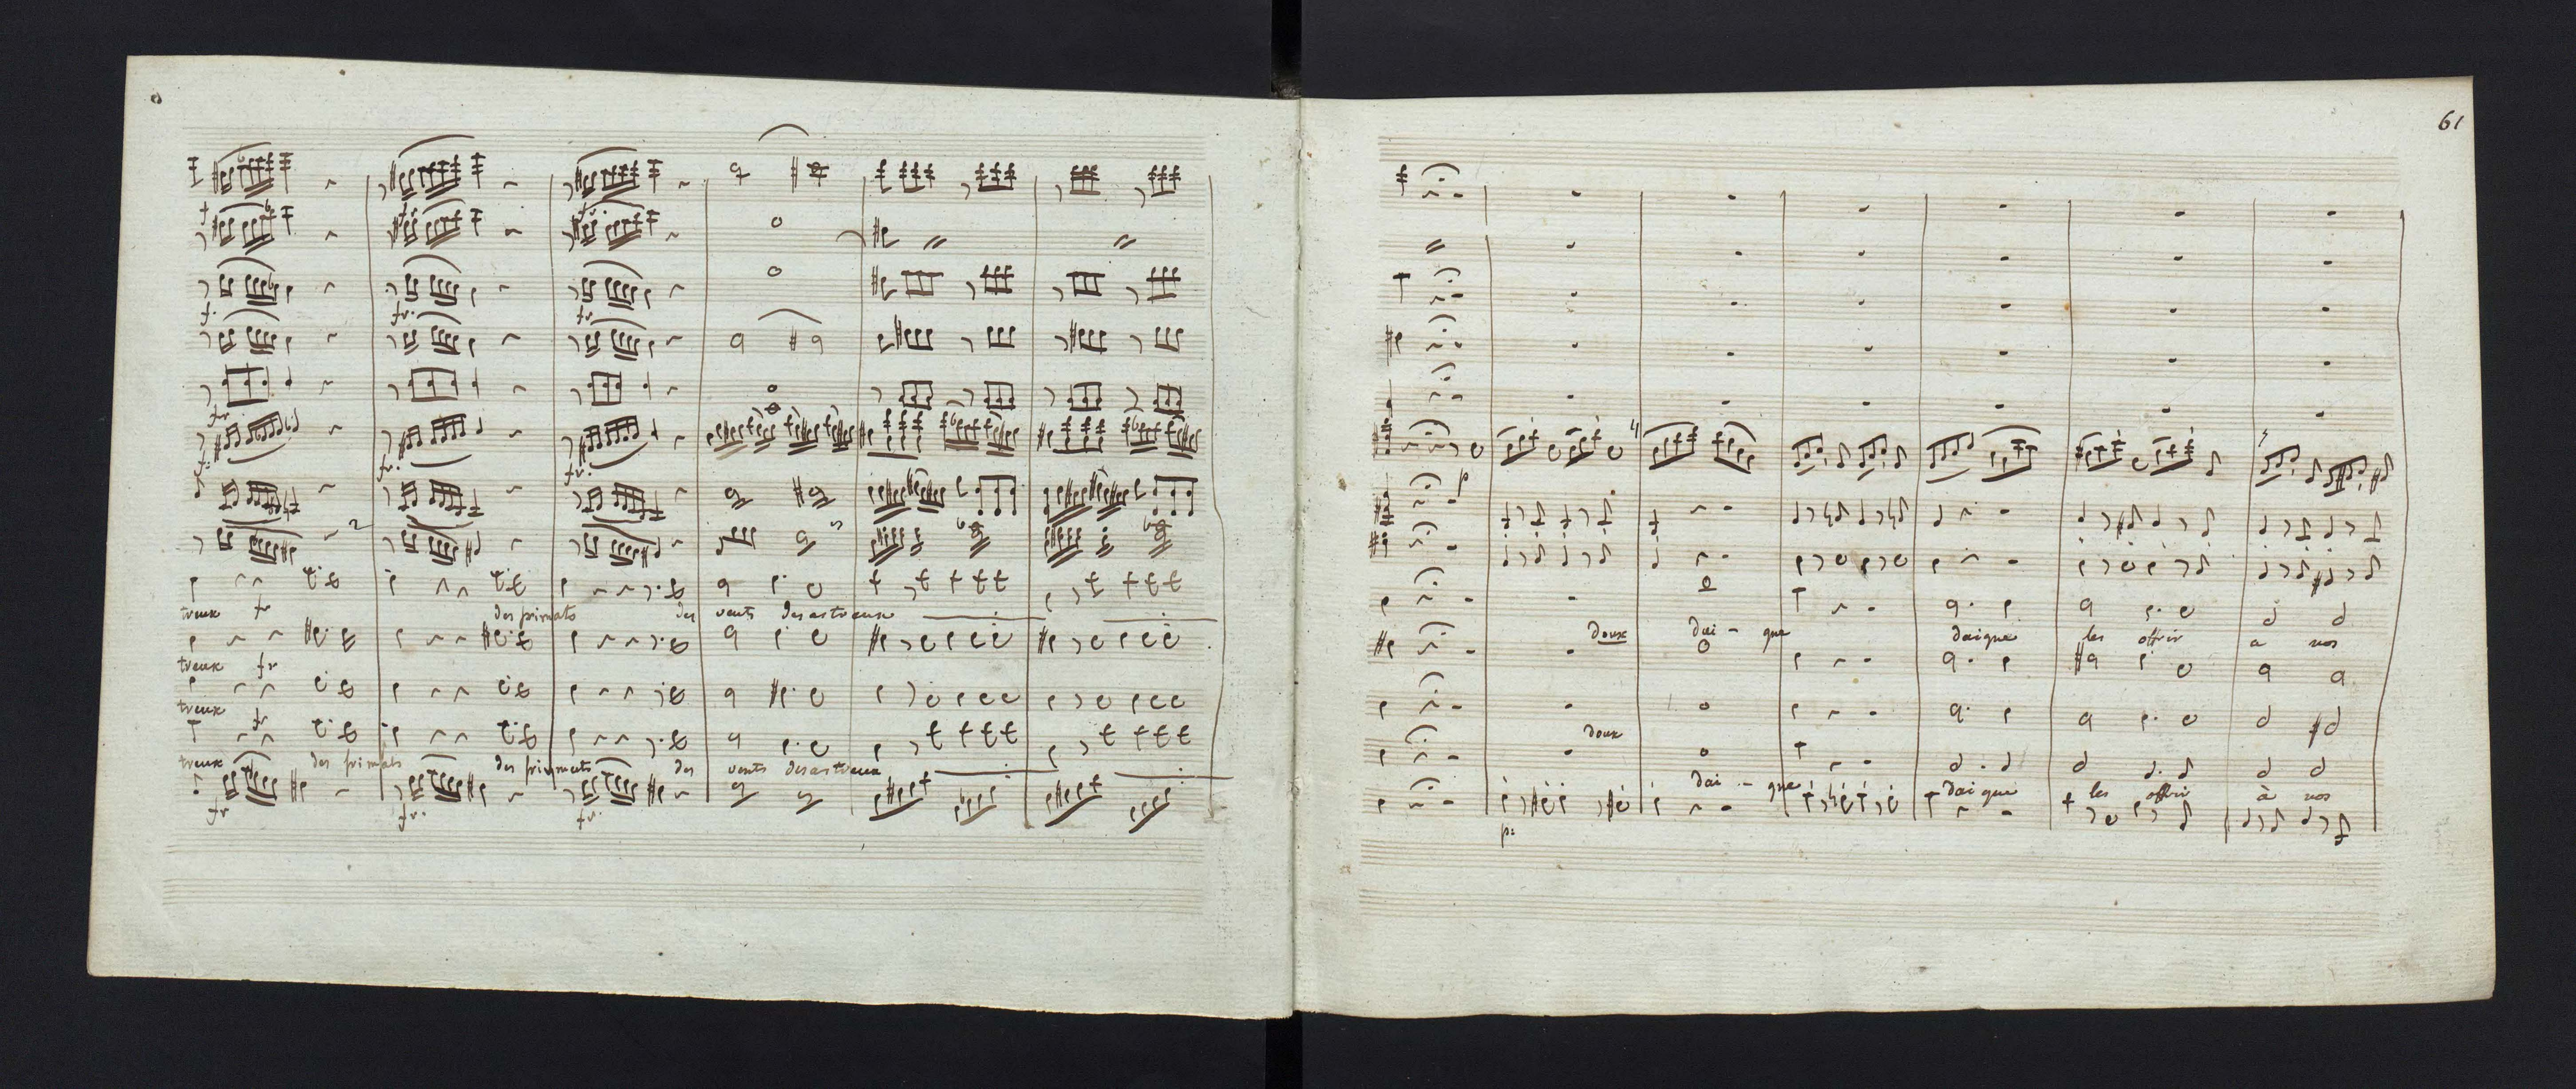 treux fr des primats des vents desastreux
treux fr
treux
fr
treux des primats des primats des vents desastreux
fr fr. fr.
61
doux dai - que daigne les offrir a nos
doux
dai - que daigne les offrir à nos
p: